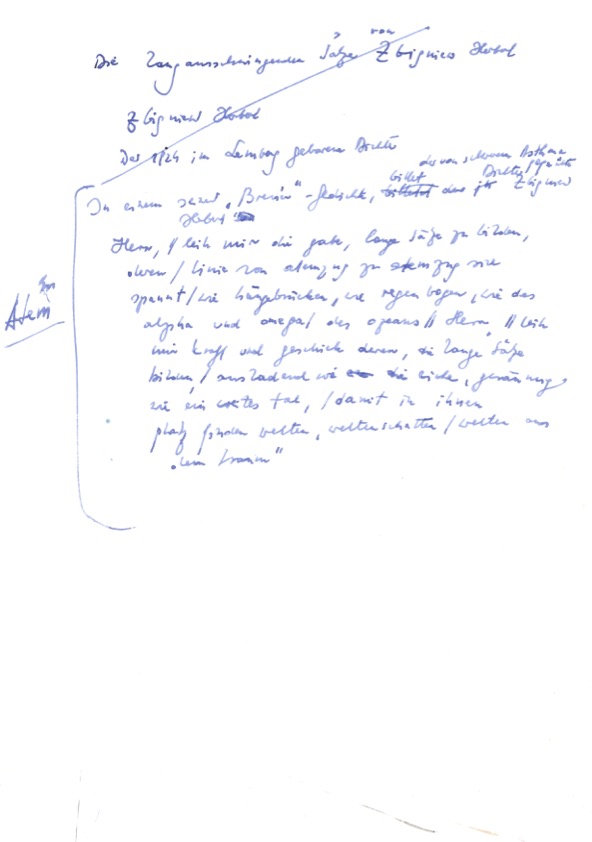 Die langausschwingenden Sätze von Zbigniew Herbert
Zbigniew Herbert
Der 1924 in Lemberg geborene Dichter
der von schwerem Asthma
bittet Dichter geplagte
In einem seiner „Brevier"-Gedichte, bittet der Zbigniew
Herbert
Herr, / leih mir die gabe, lange Sätze zu bilden,
deren / linie von atemzug zu atemzug sich
spannt / wie hängebrücken, wie regenbogen, wie das
alpha und omega / des ozeans // Herr, // leih
mir kraft und geschick derer, die lange Sätze
bilden, / ausladend wie die eiche, geräumig
wie ein weites tal, / damit in ihnen
platz finden welten, weltenschatten / welten aus
dem traum"
Atem